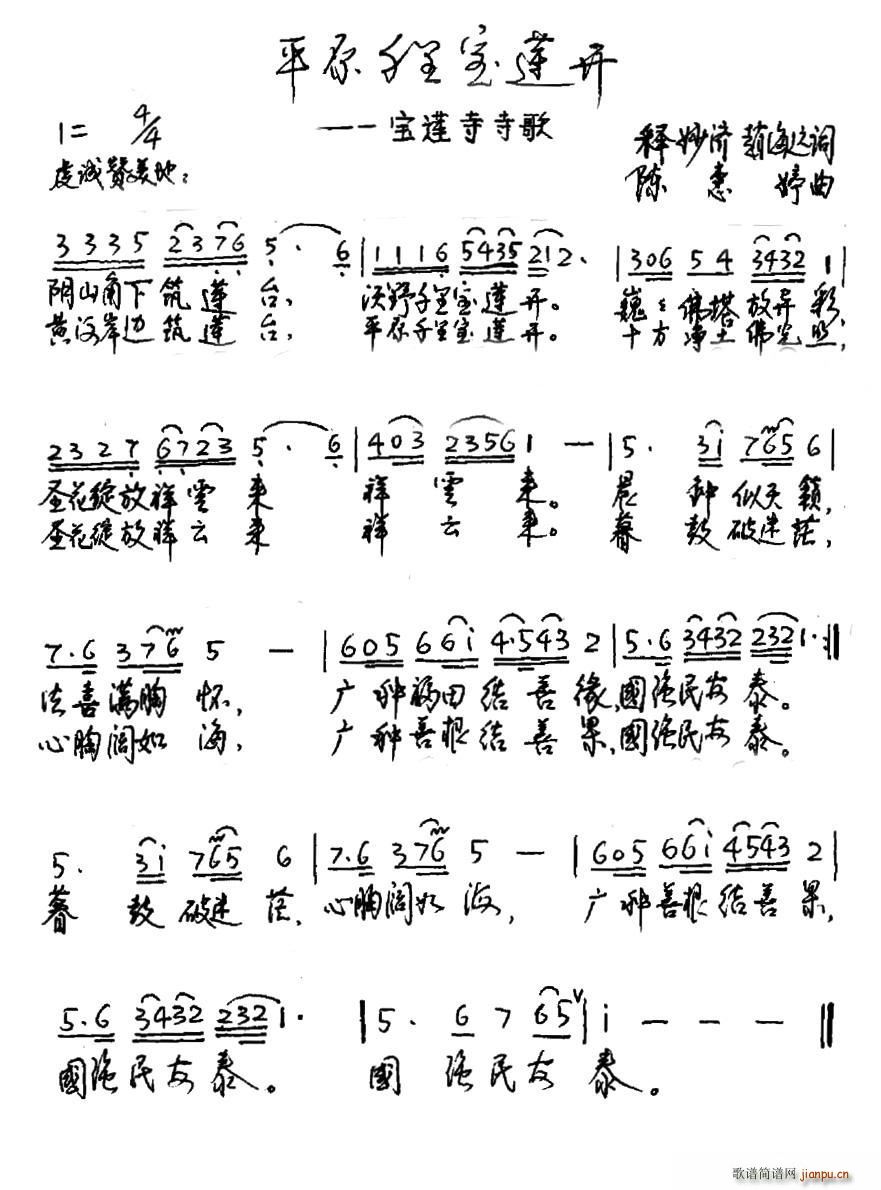 平原千里宝莲开
1= 4/4 ——宝莲寺寺歌
虔诚赞美地： 释妙济 赵海 词
陈惠婷曲
3 3 3 5 2 3 7 6 5 · 6 | 1 1 1 6 5 4 3 5 2 1 2 · | 3 0 6 5 4 3 4 3 2 1 |
阴山角下筑莲台， 沃野千里宝莲开。 巍ミ佛塔放异彩，
黄河岸边筑莲台， 平原千里宝莲开。 十方净土佛光照，
2 3 2 7 6 7 2 3 5 · 6 | 4 0 3 2 3 5 6 1 — | 5 · 3 i 7 6 5 6 |
圣花绽放祥雲来 祥雲来。 晨钟似天籁，
圣花绽放祥云来 祥云来。 暮鼓破迷茫，
7 · 6 3 7 6 5 — | 6 0 5 6 6 i 4 · 5 4 3 2 | 5 · 6 3 4 3 2 2 3 2 1 · :||
法喜满胸怀， 广种福田结善缘，國强民友泰。
心胸阔如海， 广种善根结善果，國强民友泰。
5 · 3 i 7 6 5 6 | 7 · 6 3 7 6 5 — | 6 0 5 6 6 i 4 5 4 3 2 |
暮鼓破迷茫，心胸阔如海， 广种善根结善果，
5 · 6 3 4 3 2 2 3 2 1 · | 5 · 6 7 6 5 V | i — — — ||
國强民友泰。 國强民友泰。
歌谱简谱网 jianpu.cn